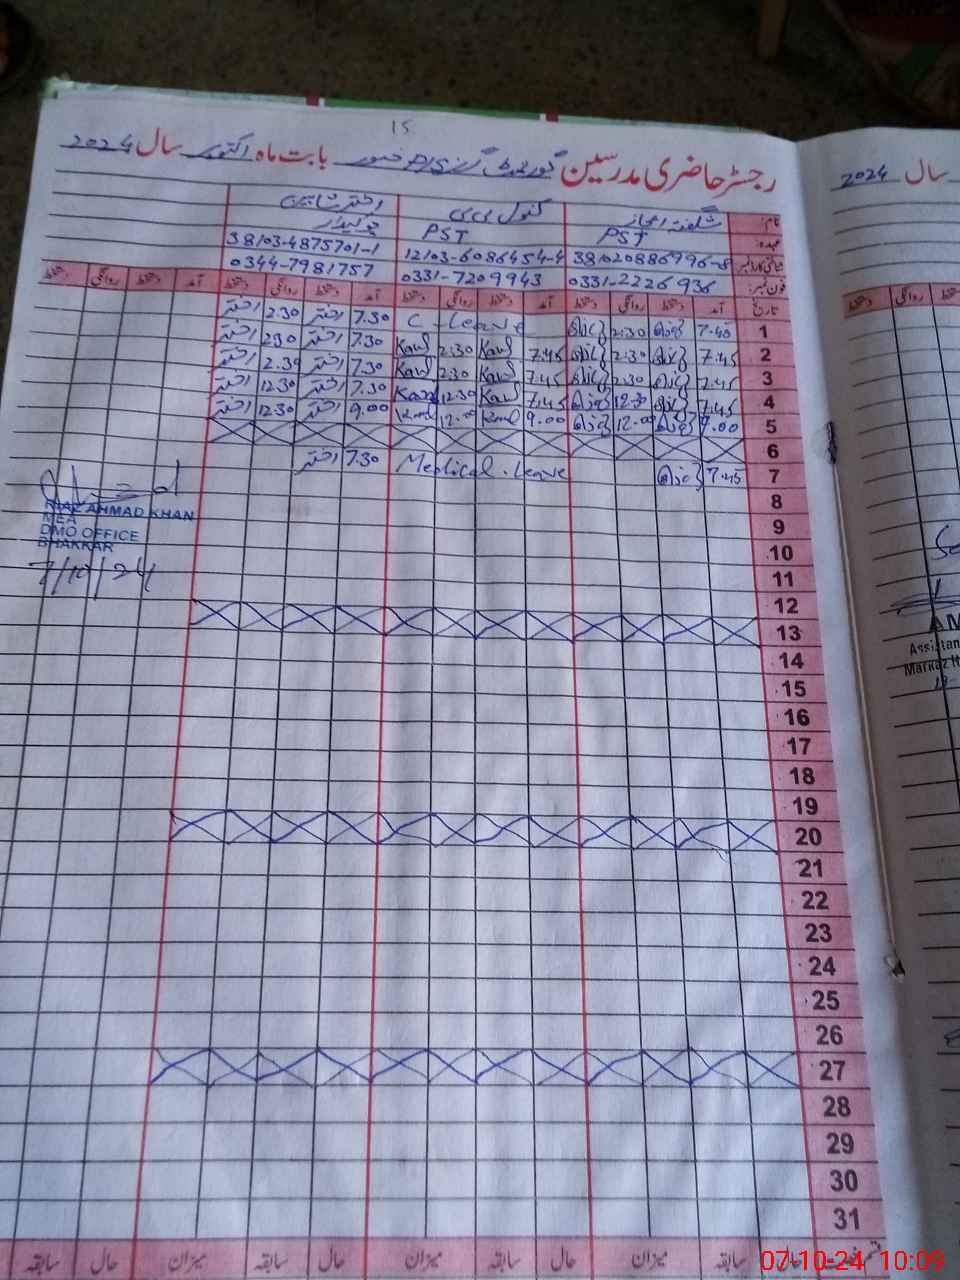 15
رجسٹر حاضری مدرسین گورنمنٹ گرلز P/S بابت ماہ اکتوبر سال 2024
نام: شگفتہ اعجاز کنول بی بی اختر شاہین
عہدہ: PST PST چوکیدار
شناختی کارڈ نمبر 381020886996-8 12103-6086454-4 38103-4875701-1
فون نمبر: 0331-2226936 0331-7209943 0344-7981757
تاریخ آمد دستخط روانگی دستخط آمد دستخط روانگی دستخط آمد دستخط روانگی دستخط آمد دستخط روانگی دستخط
1 7.45 2:30 C-Leave 7.30 اختر 2.30 اختر
2 7.45 2:30 7.45 Kawl 2:30 Kawl 7.30 اختر 2.30 اختر
3 7.45 2:30 7.45 Kawl 2:30 Kawl 7.30 اختر 2.30 اختر
4 7.45 12:30 7.45 Kawl 12:30 Kawl 7.30 اختر 12.30 اختر
5 9.00 12:00 9.00 Kawl 12:00 Kawl 9.00 اختر 12.30 اختر
6
7 7.45 Medical Leave 7.30 اختر
8
9
10
11
12
13
14
15
16
17
18
19
20
21
22
23
24
25
26
27
28
29
30
31
RIAZ AHMAD KHAN
MEA
DMO OFFICE
BHAKKAR
7/10/24
حال سابقہ میزان حال سابقہ میزان حال سابقہ میزان حال سابقہ
سال 2024
دستخط روانگی
AM
Assistan
Markaz
07-10-24 10:09